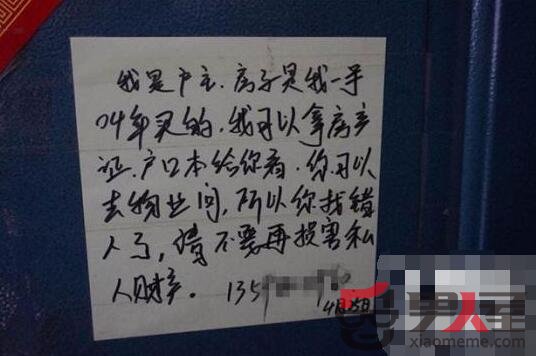 我是户主.房子是我一手
04年买的,我可以拿房产
证.户口本给你看.你可以
去物业问,所以你找错
人了,请不要再损害私
人财产。135
4月25日
男人屋
xiaomeme.com